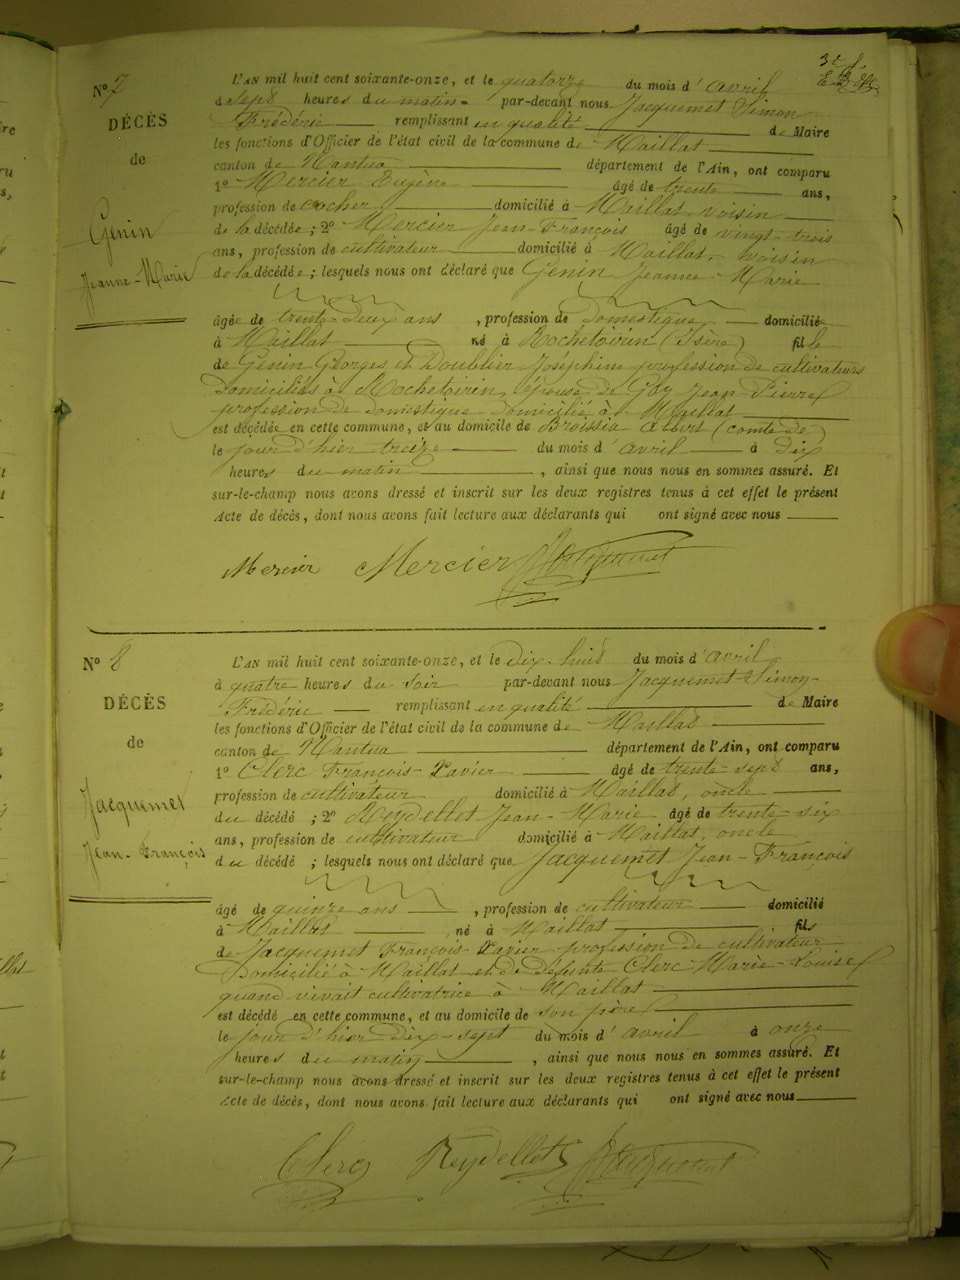 N° 7
DÉCÈS
de
Génin
Jeanne-Marie
L'AN mil huit cent soixante-onze, et le quatorze du mois d'avril
à sept heures du matin par-devant nous Jacquemet Simon
Frédéric remplissant en qualité de Maire
les fonctions d'Officier de l'état civil de la commune de Maillat
canton de Nantua département de l'Ain, ont comparu
1° Mercier Eugène âgé de trente ans,
profession de cocher domicilié à Maillat, voisin
de la décédée ; 2° Mercier Jean-François âgé de vingt-trois
ans, profession de cultivateur domicilié à Maillat, voisin
de la décédée ; lesquels nous ont déclaré que Génin Jeanne-Marie
âgée de trente-deux ans , profession de domestique domiciliée
à Maillat né à Rochetoirin (Isère) fille
de Génin Georges et Doublier Joséphine profession de cultivateurs
domiciliés à Rochetoirin, épouse de Jean-Pierre
profession de domestique domicilié à Maillat
est décédée en cette commune, et au domicile de Broissia Albert (comte de)
le jour d'hier treize du mois d'avril à dix
heures du matin , ainsi que nous nous en sommes assuré. Et
sur-le-champ nous avons dressé et inscrit sur les deux registres tenus à cet effet le présent
Acte de décès, dont nous avons fait lecture aux déclarants qui ont signé avec nous
Mercier Mercier Jacquemet
N° 8
DÉCÈS
de
Jacquemet
Jean-François
L'AN mil huit cent soixante-onze, et le dix-huit du mois d'avril
à quatre heures du soir par-devant nous Jacquemet Simon-
Frédéric remplissant en qualité de Maire
les fonctions d'Officier de l'état civil de la commune de Maillat
canton de Nantua département de l'Ain, ont comparu
1° Clerc François-Xavier âgé de trente-sept ans,
profession de cultivateur domicilié à Maillat, oncle
du décédé ; 2° Reydellet Jean-Marie âgé de trente-six
ans, profession de cultivateur domicilié à Maillat, oncle
du décédé ; lesquels nous ont déclaré que Jacquemet Jean-François
âgé de quinze ans , profession de cultivateur domicilié
à Maillat né à Maillat fils
de Jacquemet François-Xavier profession de cultivateur
domicilié à Maillat et de défunte Clerc Marie-Louise
quand vivait cultivatrice à Maillat
est décédé en cette commune, et au domicile de son père
le jour d'hier dix-sept du mois d'avril à onze
heures du matin , ainsi que nous nous en sommes assuré. Et
sur-le-champ nous avons dressé et inscrit sur les deux registres tenus à cet effet le présent
Acte de décès, dont nous avons fait lecture aux déclarants qui ont signé avec nous
Clerc Reydellet Jacquemet